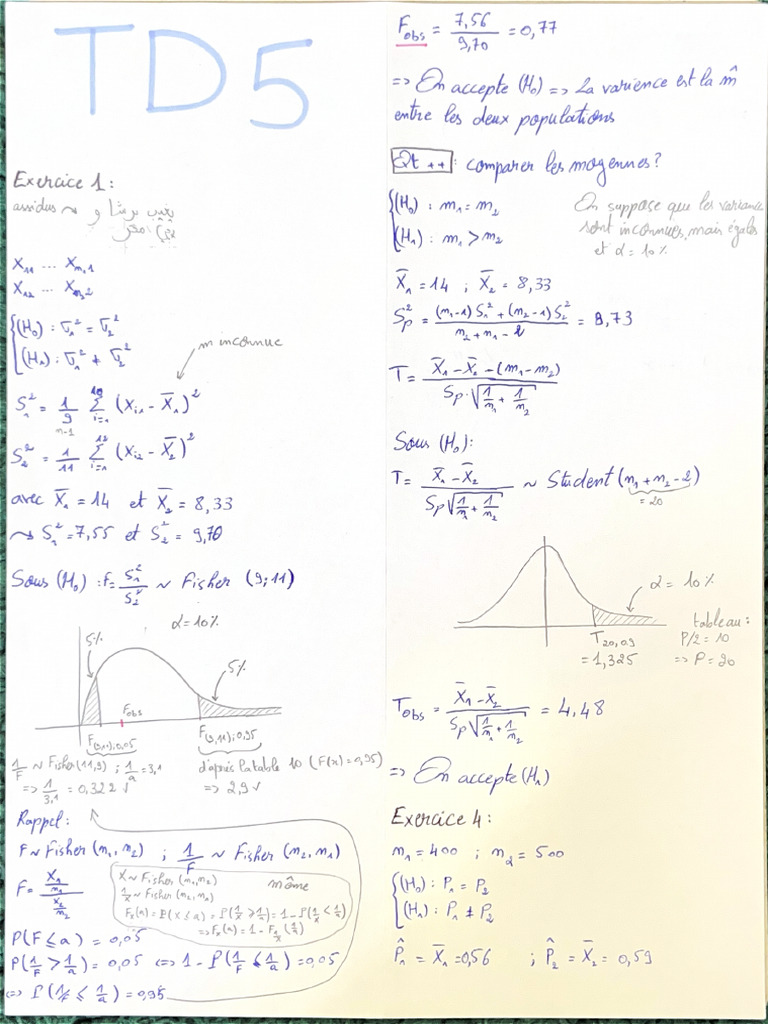 TD5
Exercice 1:
assidus ~>
X₁₁ ... Xₙ₁1
X₁₂ ... Xₙ₂2
{(H₀) : σ₁² = σ₂²
(H₁) : σ₁² ≠ σ₂²
m inconnue
S₁² = 1/9 Σ_{i=1}^{10} (Xᵢ₁ - X̄₁)²
n-1
S₂² = 1/11 Σ_{i=1}^{12} (Xᵢ₂ - X̄₂)²
avec X̄₁ = 14 et X̄₂ = 8,33
~> S₁² = 7,55 et S₂² = 9,70
Sous (H₀) : F = S₁²/S₂² ~ Fisher (9;11)
α = 10%
5%
5%
Fobs
F(9,11);0,05
F(9,11);0,95
1/F ~ Fisher(11,9) ; 1/a = 3,1
=> 1/3,1 = 0,322 √
d'après la table 10 (F(x)=0,95)
=> 2,9 √
Rappel:
F ~ Fisher (n₁, n₂) ; 1/F ~ Fisher (n₂, n₁)
F = (X₁/n₁)/(X₂/n₂)
X ~ Fisher (n₁,n₂)
1/X ~ Fisher (n₂,n₁)
même
Fₓ(a) = P(X ≤ a) = P(1/X ≥ 1/a) = 1 - P(1/X ≤ 1/a)
=> Fₓ(a) = 1 - F_{1/X}(1/a)
P(F ≤ a) = 0,05
P(1/F > 1/a) = 0,05 <=> 1 - P(1/F ≤ 1/a) = 0,05
<=> P(1/F ≤ 1/a) = 0,95
Fobs = 7,56/9,70 = 0,77
=> On accepte (H₀) => La varience est la m̂
entre les deux populations
Qt ++ : comparer les moyennes?
{(H₀) : m₁ = m₂
(H₁) : m₁ > m₂
On suppose que les variance
sont inconnues, mais égales
et α = 10%
X̄₁ = 14 ; X̄₂ = 8,33
Sp² = ((n₁-1) S₁² + (n₂-1) S₂²)/(n₂ + n₁ - 2) = 8,73
T = (X̄₁ - X̄₂ - (m₁ - m₂))/(Sp · √(1/n₁ + 1/n₂))
Sous (H₀):
T = (X̄₁ - X̄₂)/(Sp √(1/n₁ + 1/n₂)) ~ Student (n₁ + n₂ - 2)
= 20
α = 10%
T₂₀,₀.₉
= 1,325
tableau:
P/2 = 10
=> P = 20
Tobs = (X̄₁ - X̄₂)/(Sp √(1/n₁ + 1/n₂)) = 4,48
=> On accepte (H₁)
Exercice 4:
n₁ = 400 ; n₂ = 500
{(H₀) : P₁ = P₂
(H₁) : P₁ ≠ P₂
P̂₁ = X̄₁ = 0,56 ; P̂₂ = X̄₂ = 0,59